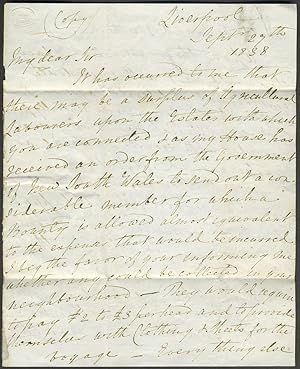 (Copy)
Liverpool
Sept 29th
1838
My dear Sir
It has occurred to me that
there may be a surplus of Agricultural
Labourers upon the Estates with which
you are connected & as my House has
received an order from the Government
of New South Wales to send out a con
siderable number for which a
Bounty is allowed almost equivalent
to the expenses that would be incurred
I beg the favor of your informing me
whether any could be collected in your
neighbourhood — They would require
to pay £2 to £3 per head and to provide
themselves with Clothing & for the
voyage — Everything else